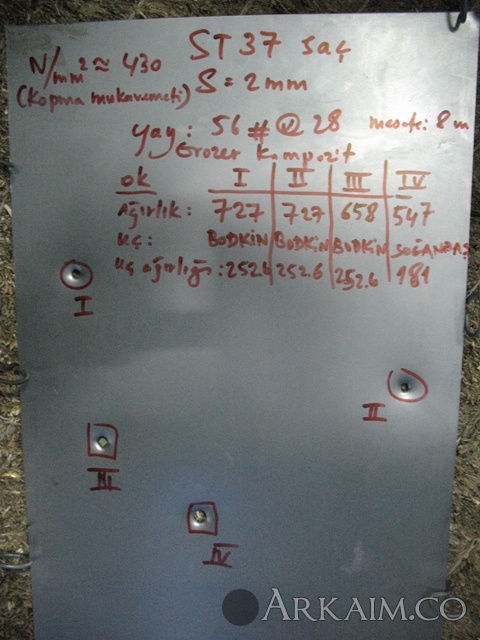 ST 37 saç
N/mm² ≈ 430
(Kopma mukavemeti) S = 2 mm
yay: 56 # @ 28 mesafe: 8 m
Grozer Kompozit
ok I II III IV
Ağırlık: 727 727 658 547
uç: BODKİN BODKİN BODKİN SOĞANBAŞ
uç ağırlığı: 252.6 252.6 252.6 181
I
II
III
IV
ARKAIM.CO